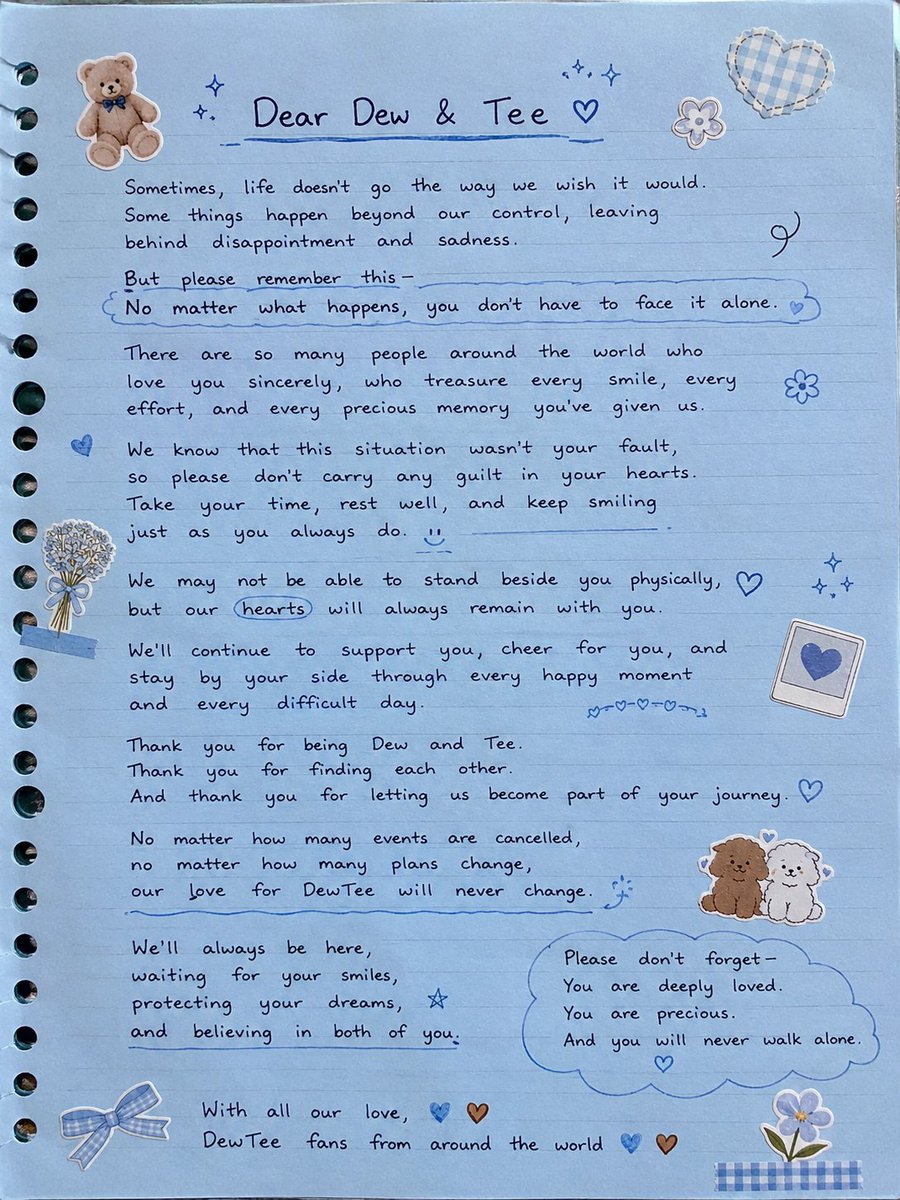 Dear Dew & Tee ♡
Sometimes, life doesn't go the way we wish it would.
Some things happen beyond our control, leaving
behind disappointment and sadness.
But please remember this—
No matter what happens, you don't have to face it alone.
There are so many people around the world who
love you sincerely, who treasure every smile, every
effort, and every precious memory you've given us.
We know that this situation wasn't your fault,
so please don't carry any guilt in your hearts.
Take your time, rest well, and keep smiling
just as you always do.
We may not be able to stand beside you physically,
but our hearts will always remain with you.
We'll continue to support you, cheer for you, and
stay by your side through every happy moment
and every difficult day.
Thank you for being Dew and Tee.
Thank you for finding each other.
And thank you for letting us become part of your journey.
No matter how many events are cancelled,
no matter how many plans change,
our love for DewTee will never change.
We'll always be here,
waiting for your smiles,
protecting your dreams,
and believing in both of you.
Please don't forget—
You are deeply loved.
You are precious.
And you will never walk alone.
With all our love,
DewTee fans from around the world